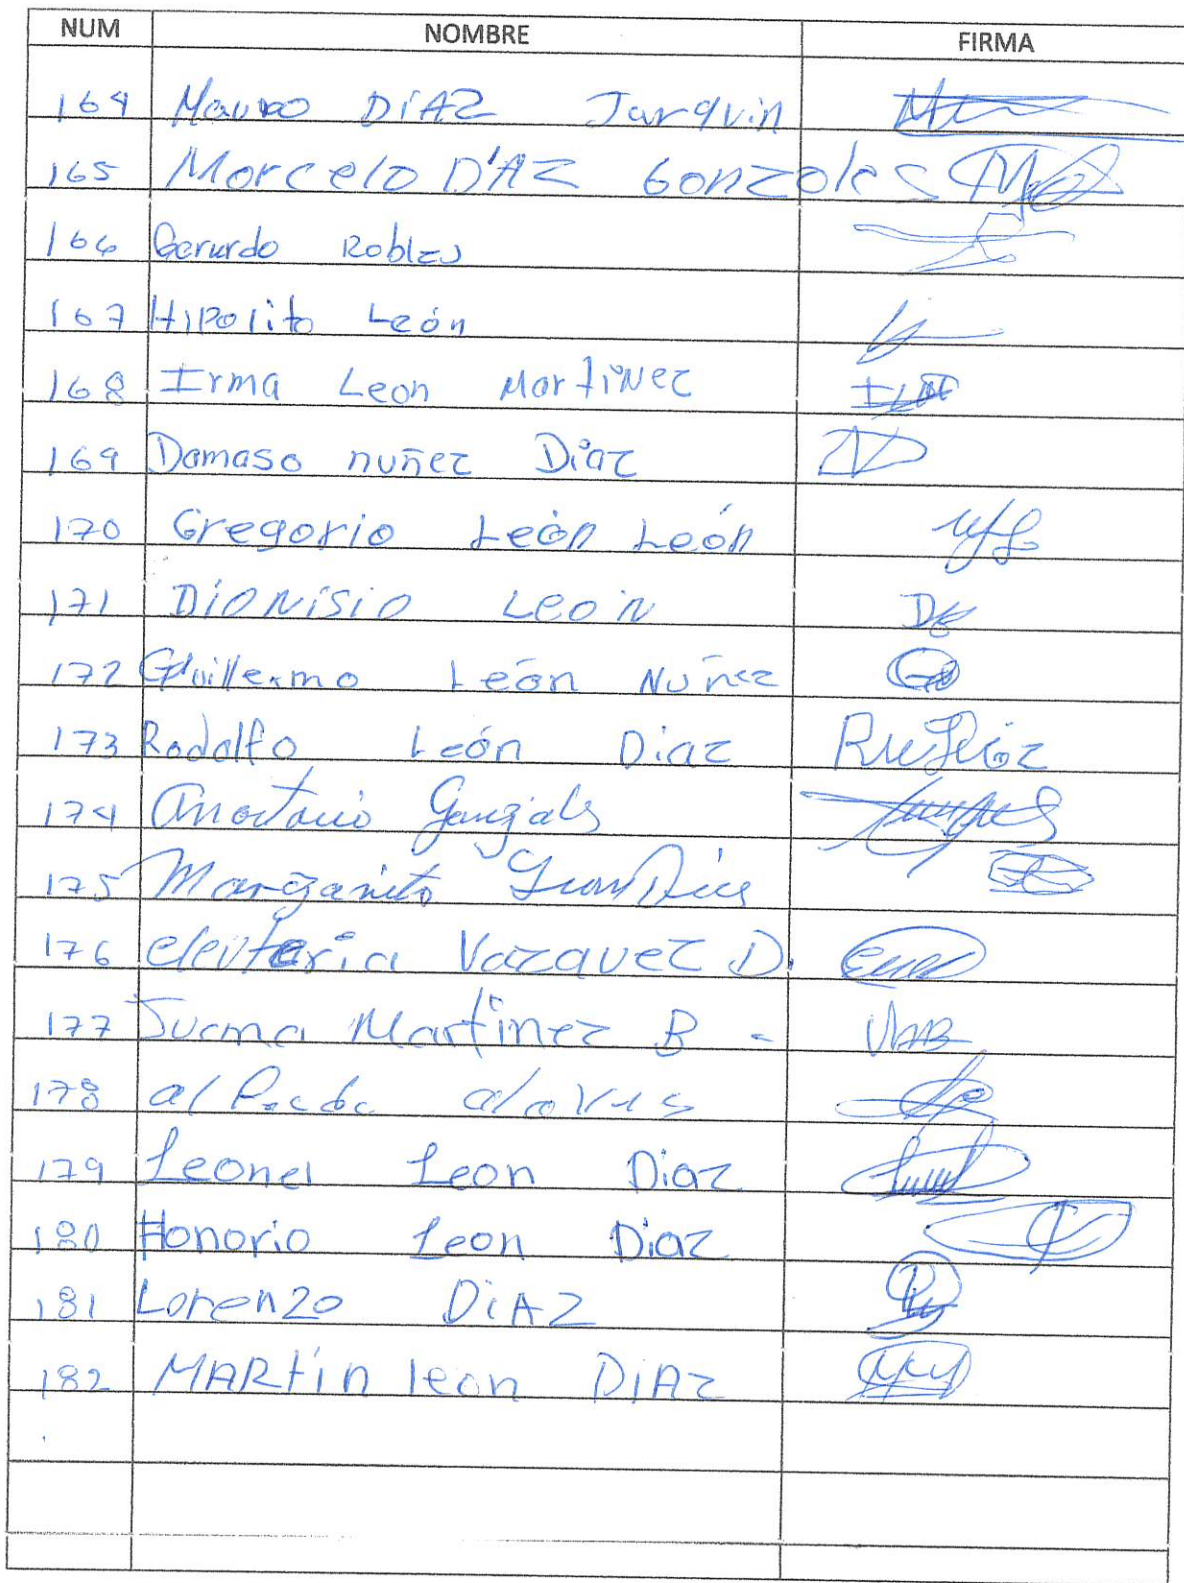 NUM NOMBRE FIRMA
164 Mauro DíAZ Jarquin
165 Morcelo DíAZ Gonzoles
166 Gerardo Robles
167 HIPolito León
168 Irma Leon MartiNez
169 Damaso nuñez Diaz
170 Gregorio León León
171 DIONISIO LEON
172 Guillermo León Nuñez
173 Rodolfo León Diaz
174 Anastacio
175 Margarito
176 eleuteria Vazquez D.
177 Martinez B
178
179 Leonel Leon Diaz
180 Honorio Leon Diaz
181 Lorenzo DiAZ
182 MARtin leon DiAz